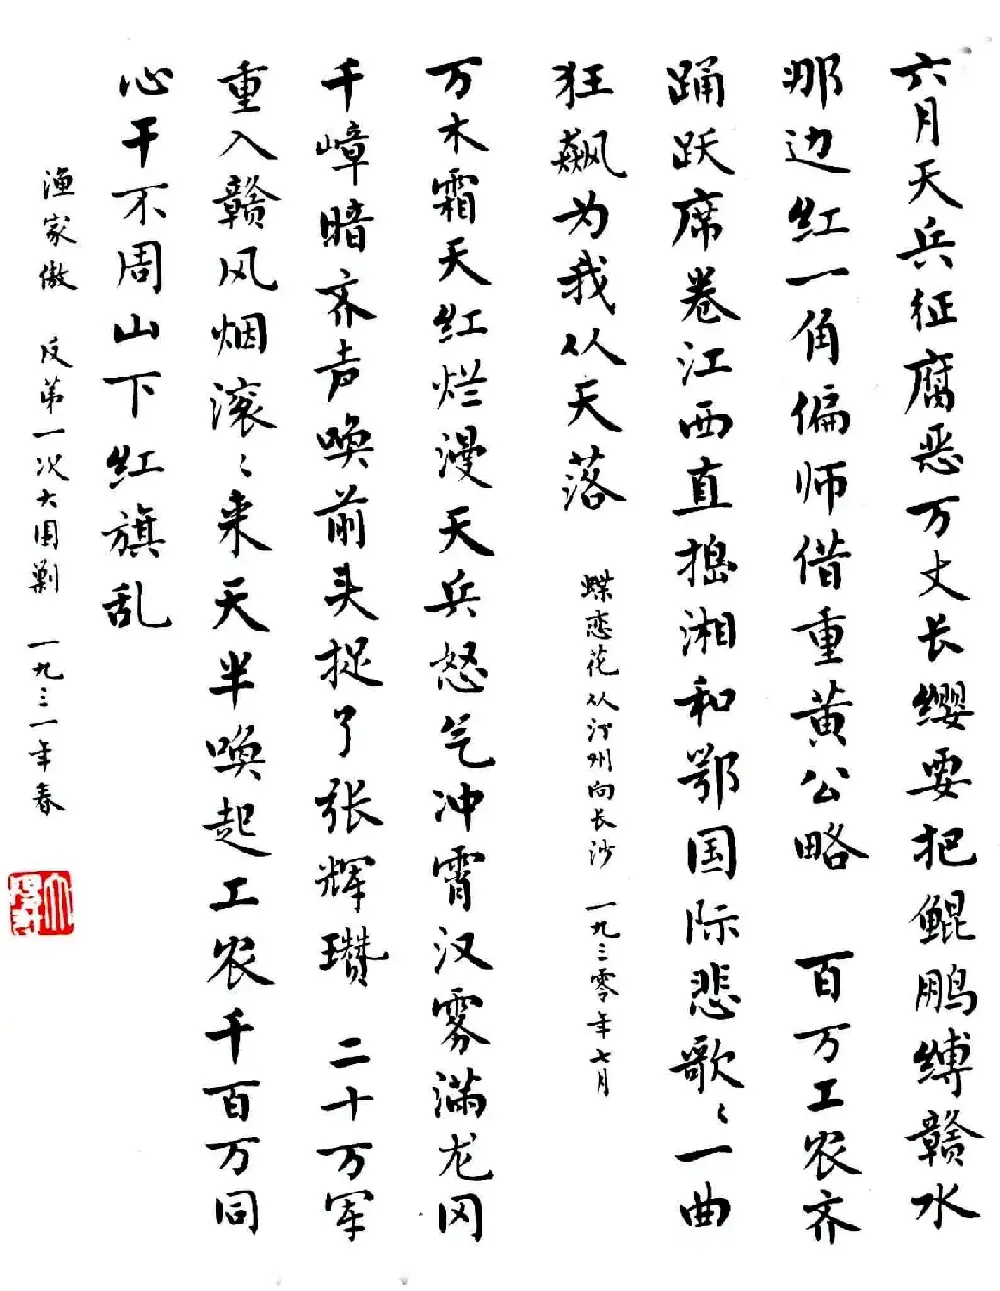 六月天兵征腐恶万丈长缨要把鲲鹏缚赣水
那边红一角偏师借重黄公略 百万工农齐
踊跃席卷江西直捣湘和鄂国际悲歌〻一曲
狂飙为我从天落 蝶恋花从汀州向长沙 一九三零年七月
万木霜天红烂漫天兵怒气冲霄汉雾满龙冈
千嶂暗齐声唤前头捉了张辉瓒 二十万军
重入赣风烟滚〻来天半唤起工农千百万同
心干不周山下红旗乱
渔家傲 反第一次大围剿 一九三一年春